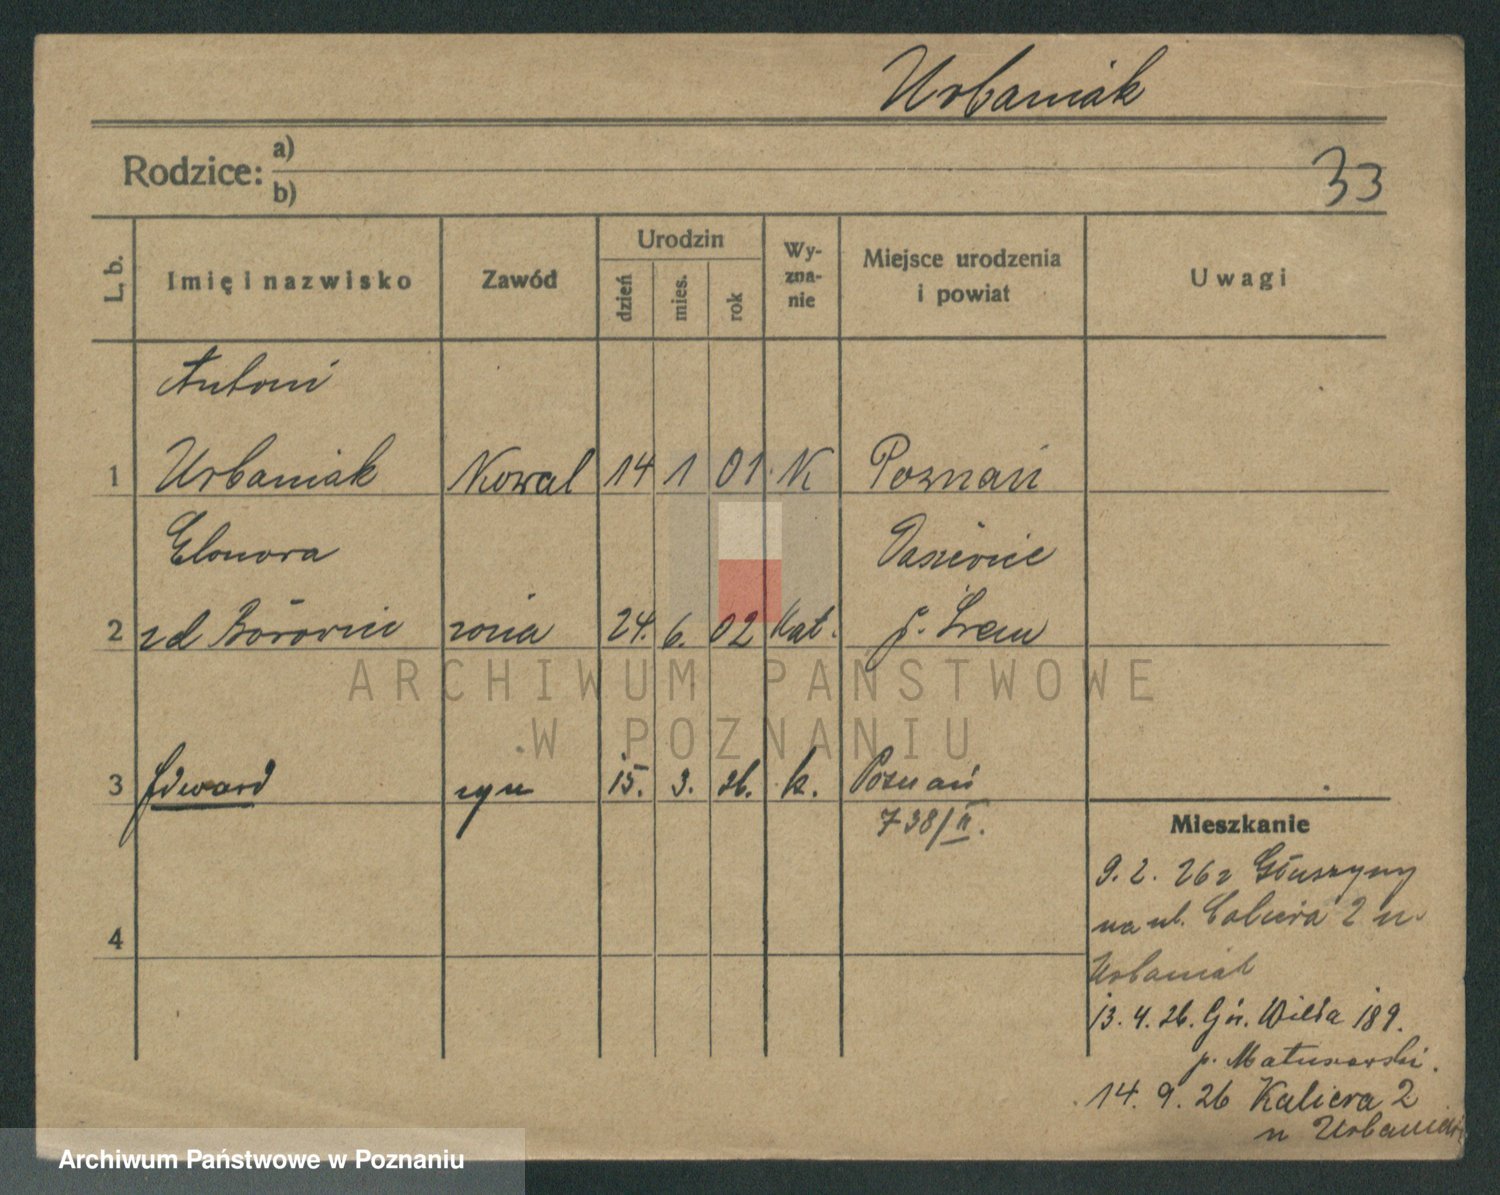 Urbaniak
Rodzice: a)
b)
33
L. b.
Imię i nazwisko
Zawód
Urodzin
dzień
mies.
rok
Wy-
zna-
nie
Miejsce urodzenia
i powiat
Uwagi
Antoni
1 Urbaniak Kowal 14 1 01 K Poznań
Elonora
2 zd żona 24. 6. 02 Kat. p. Śrem
3 Edward syn 15. 3. 26. k. Poznań
738/II.
Mieszkanie
9. 2. 26 z Głuszyny
na ul. 2 u
Urbaniak
13. 4. 26. Gór. Wilda 189.
p.
14. 9. 26 Kaliera 2
u Urbaniak
4
ARCHIWUM PAŃSTWOWE
W POZNANIU
Archiwum Państwowe w Poznaniu